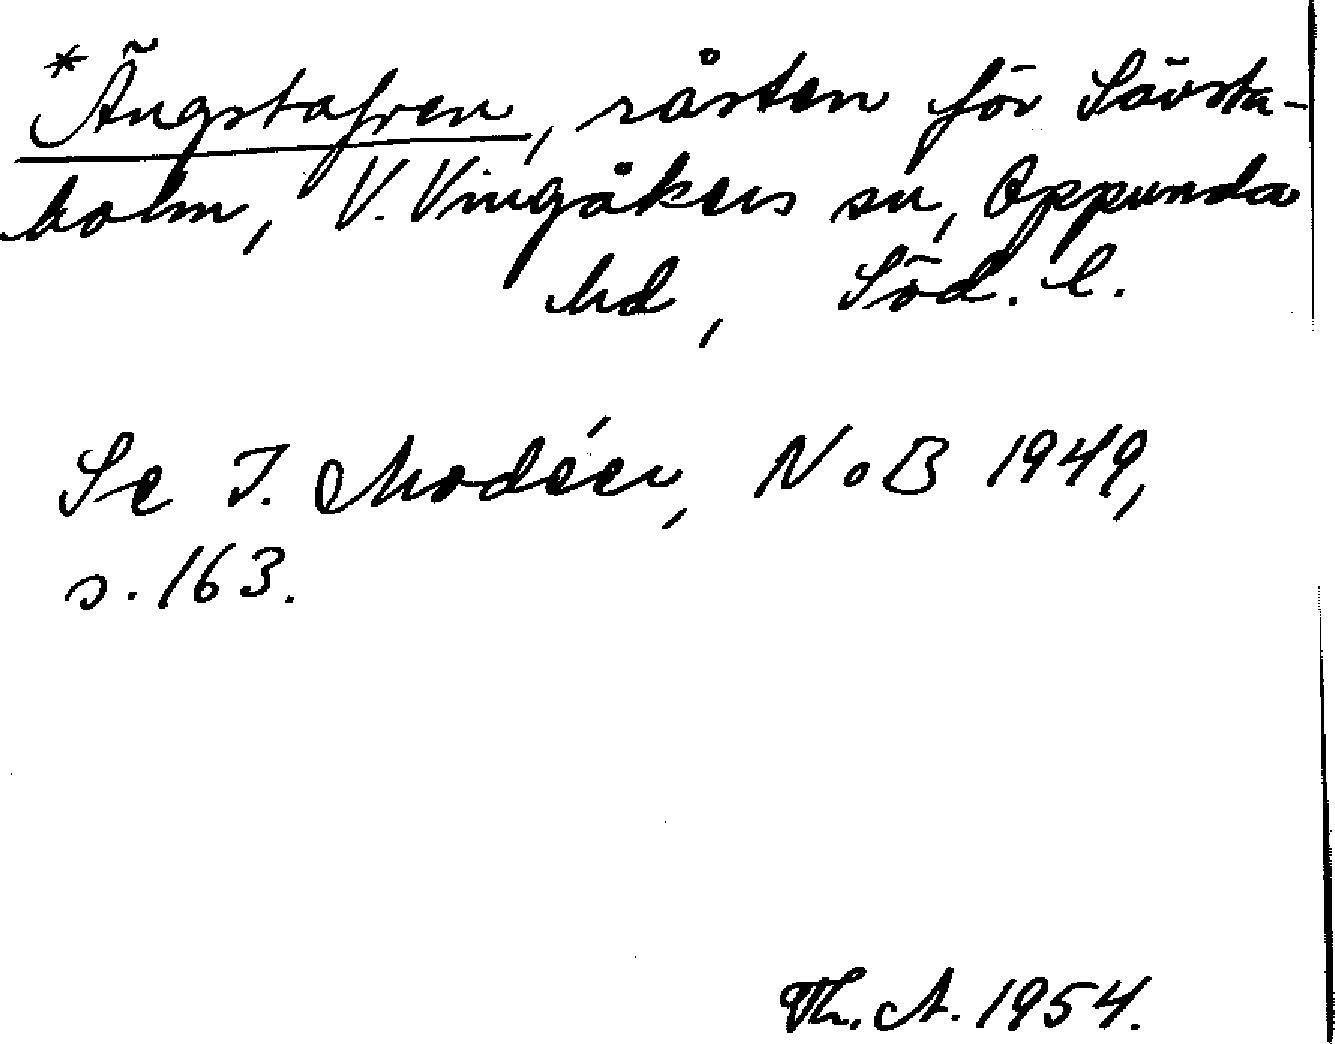 *Ängstafren, råsten för Sävsta-
holm, V. Vingåkers sn, Oppunda
hd, Söd. l.
Se I. Modéer, NoB 1949,
s. 163.
Th. A. 1954.